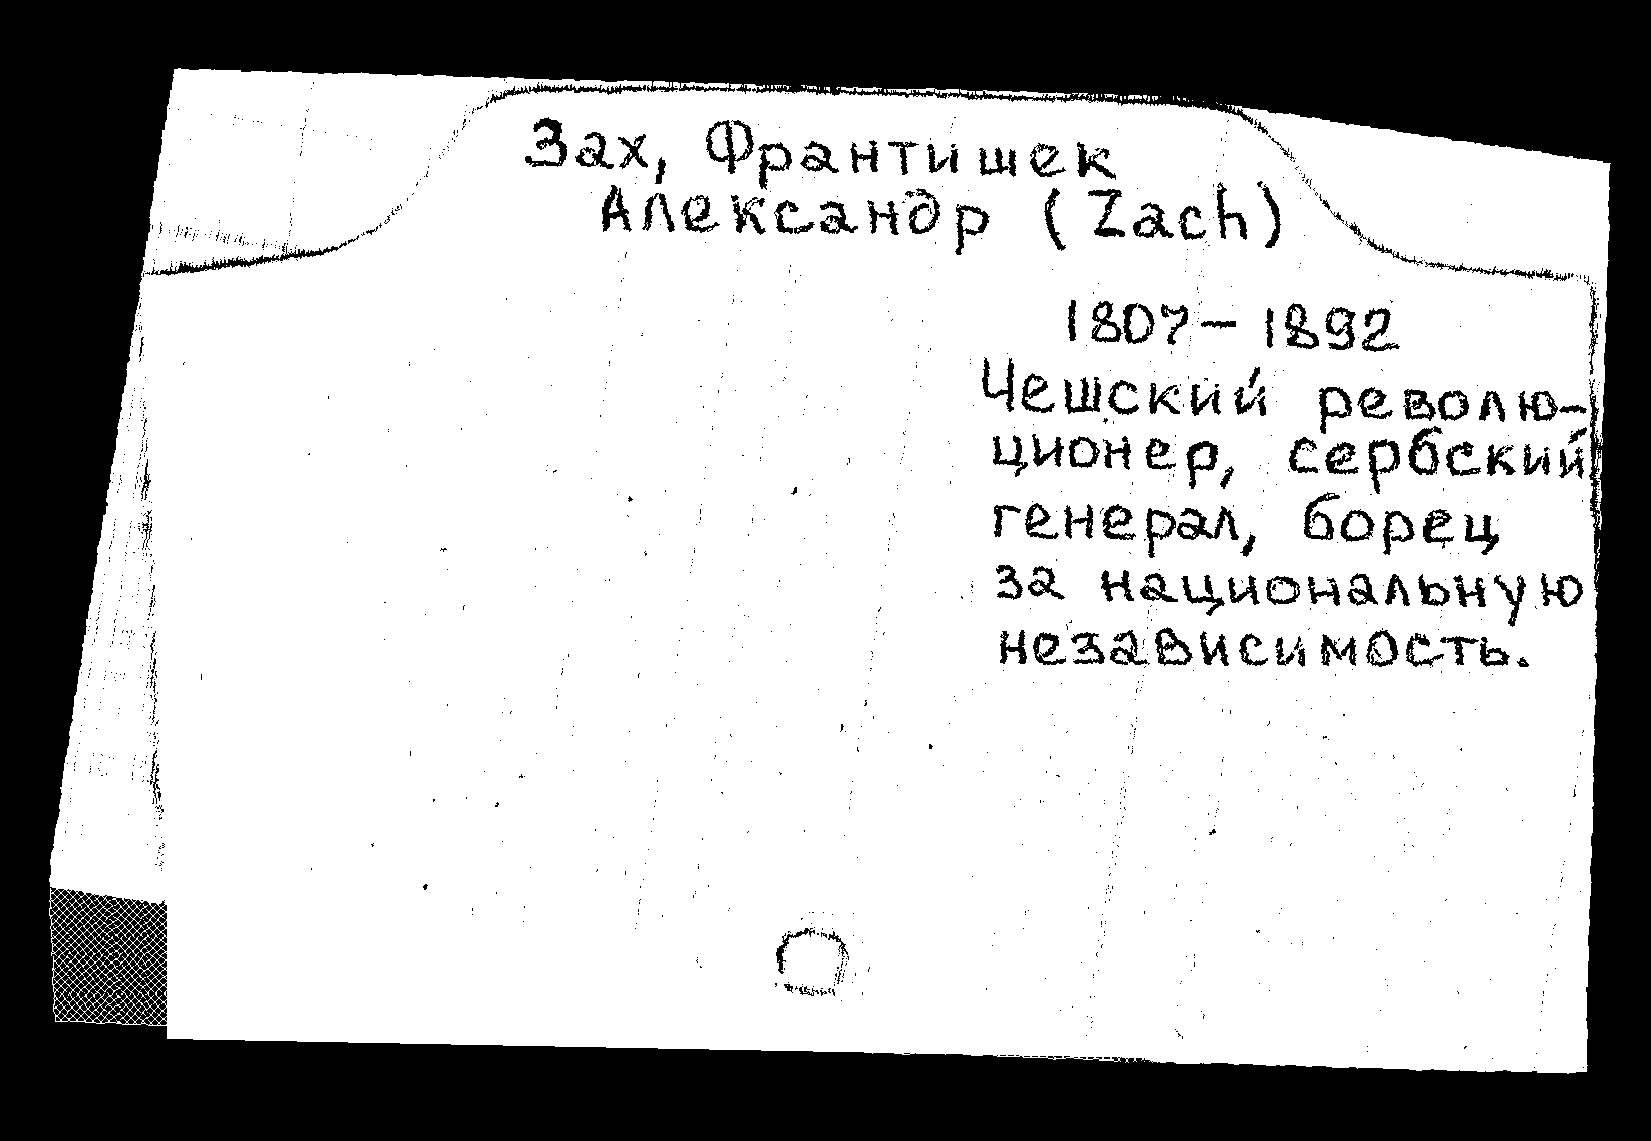 Зах, Франтишек
Александр (Zach)
1807 – 1892
Чешский револю-
ционер, сербский
генерал, борец
за национальную
независимость.